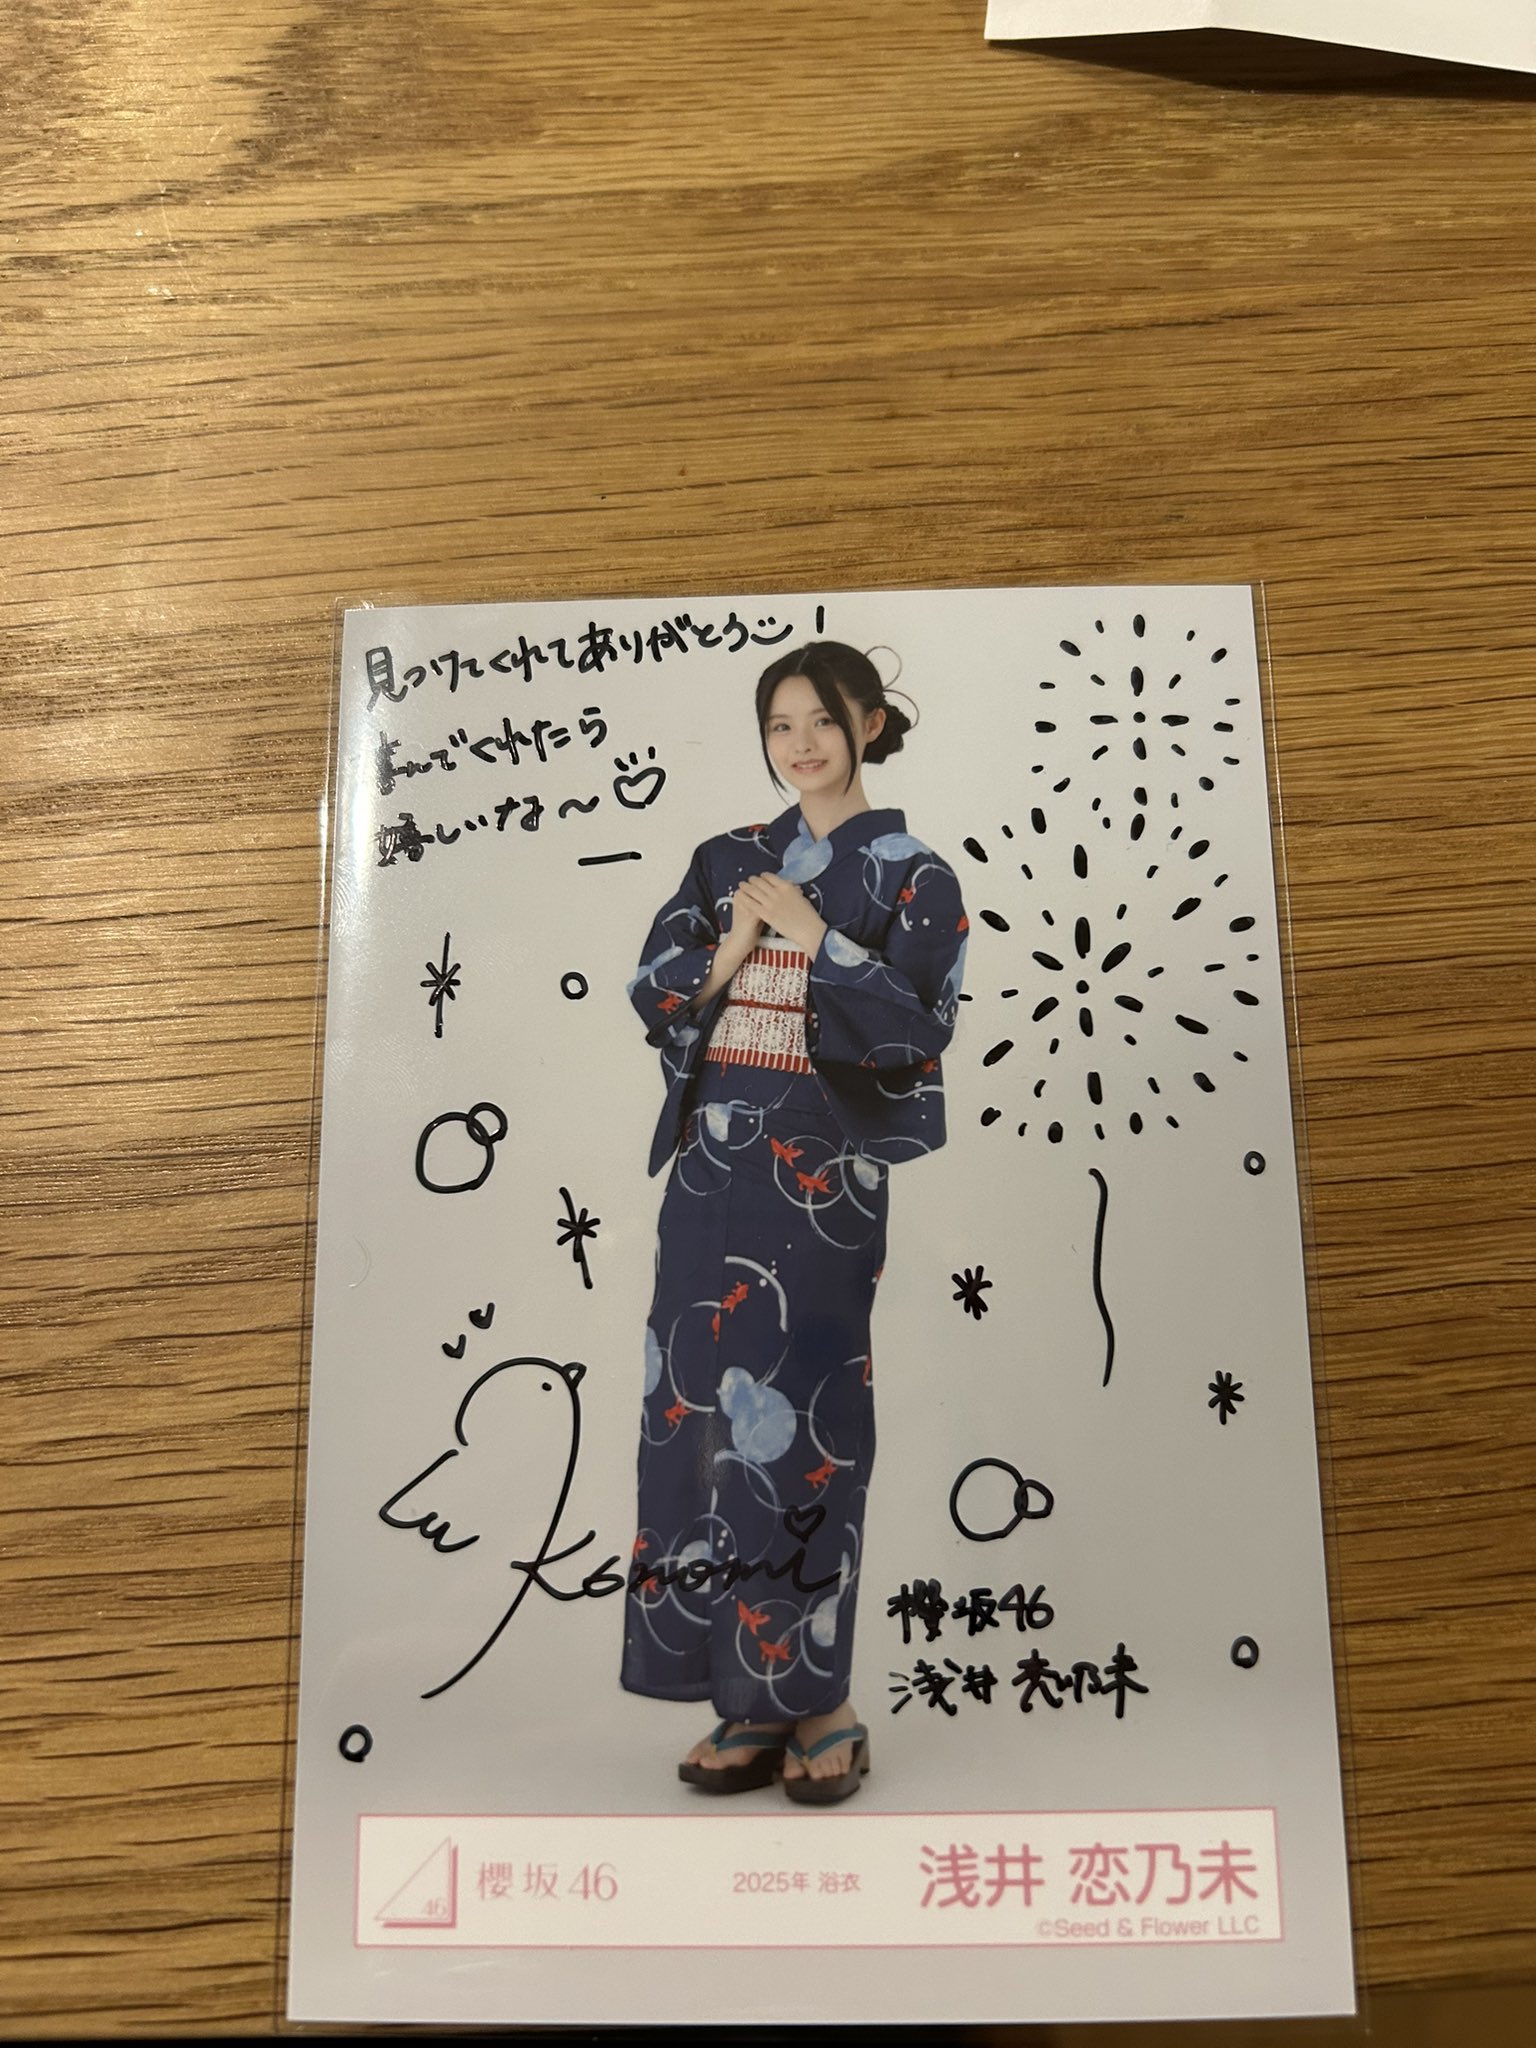 見つけてくれてありがとう!
よんでくれたら
嬉しいな〜
Konomi
櫻坂46
浅井 恋乃未
46 櫻坂46 2025年 浴衣 浅井 恋乃未
©Seed & Flower LLC